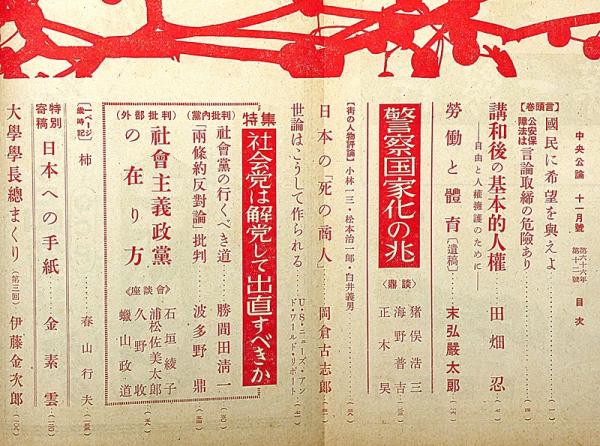 中央公論 十一月號 第六十六年 第十二號 目次
【巻頭言】國民に希望を與えよ
公安保障法は言論取締の危険あり
講和後の基本的人権 田畑忍
――自由と人権擁護のために――
勞働と體育〔遺稿〕 末弘嚴太郎
警察国家化の兆
〈鼎談〉
猪俣浩三
海野普吉
正木昊
〔街の人物評論〕小林一三・松本治一郎・白井義男
日本の「死の商人」 岡倉古志郎
世論はこうして作られる U・S・ニューズ・アンド・ワールド・リポート
特集 社会党は解党して出直すべきか
(黨内批判)
社會黨の行くべき道 勝間田清一
「兩條約反對論」批判 波多野鼎
(外部批判)
社會主義政黨の在り方
〈座談會〉
石垣綾子
浦松佐美太郎
久野收
蠟山政道
〔一ページ歳時記〕柿 春山行夫
特別寄稿 日本への手紙 金素雲
大學學長總まくり(第三回) 伊藤金次郎